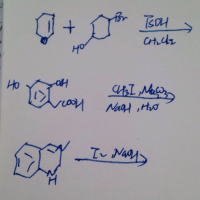 O + HO Br TsOH
CH2Cl2
HO OH COOH CH3I,
NaOH, H2O
N H I2, NaOH